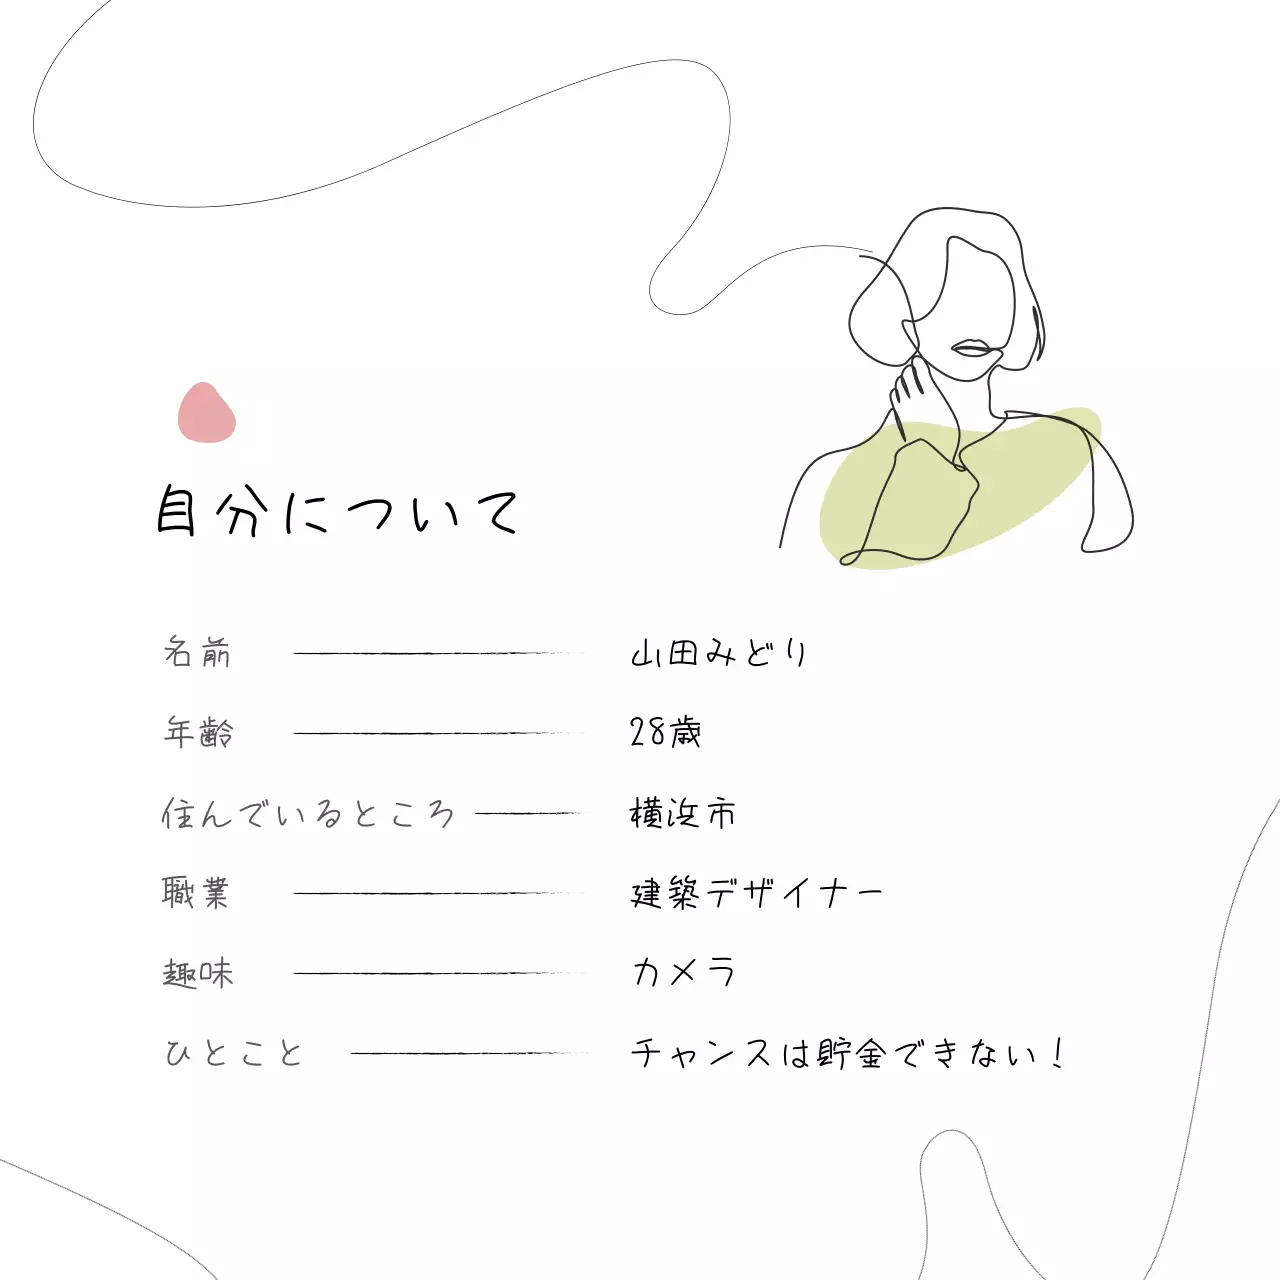 自分について
名前 山田みどり
年齢 28歳
住んでいるところ 横浜市
職業 建築デザイナー
趣味 カメラ
ひとこと チャンスは貯金できない!